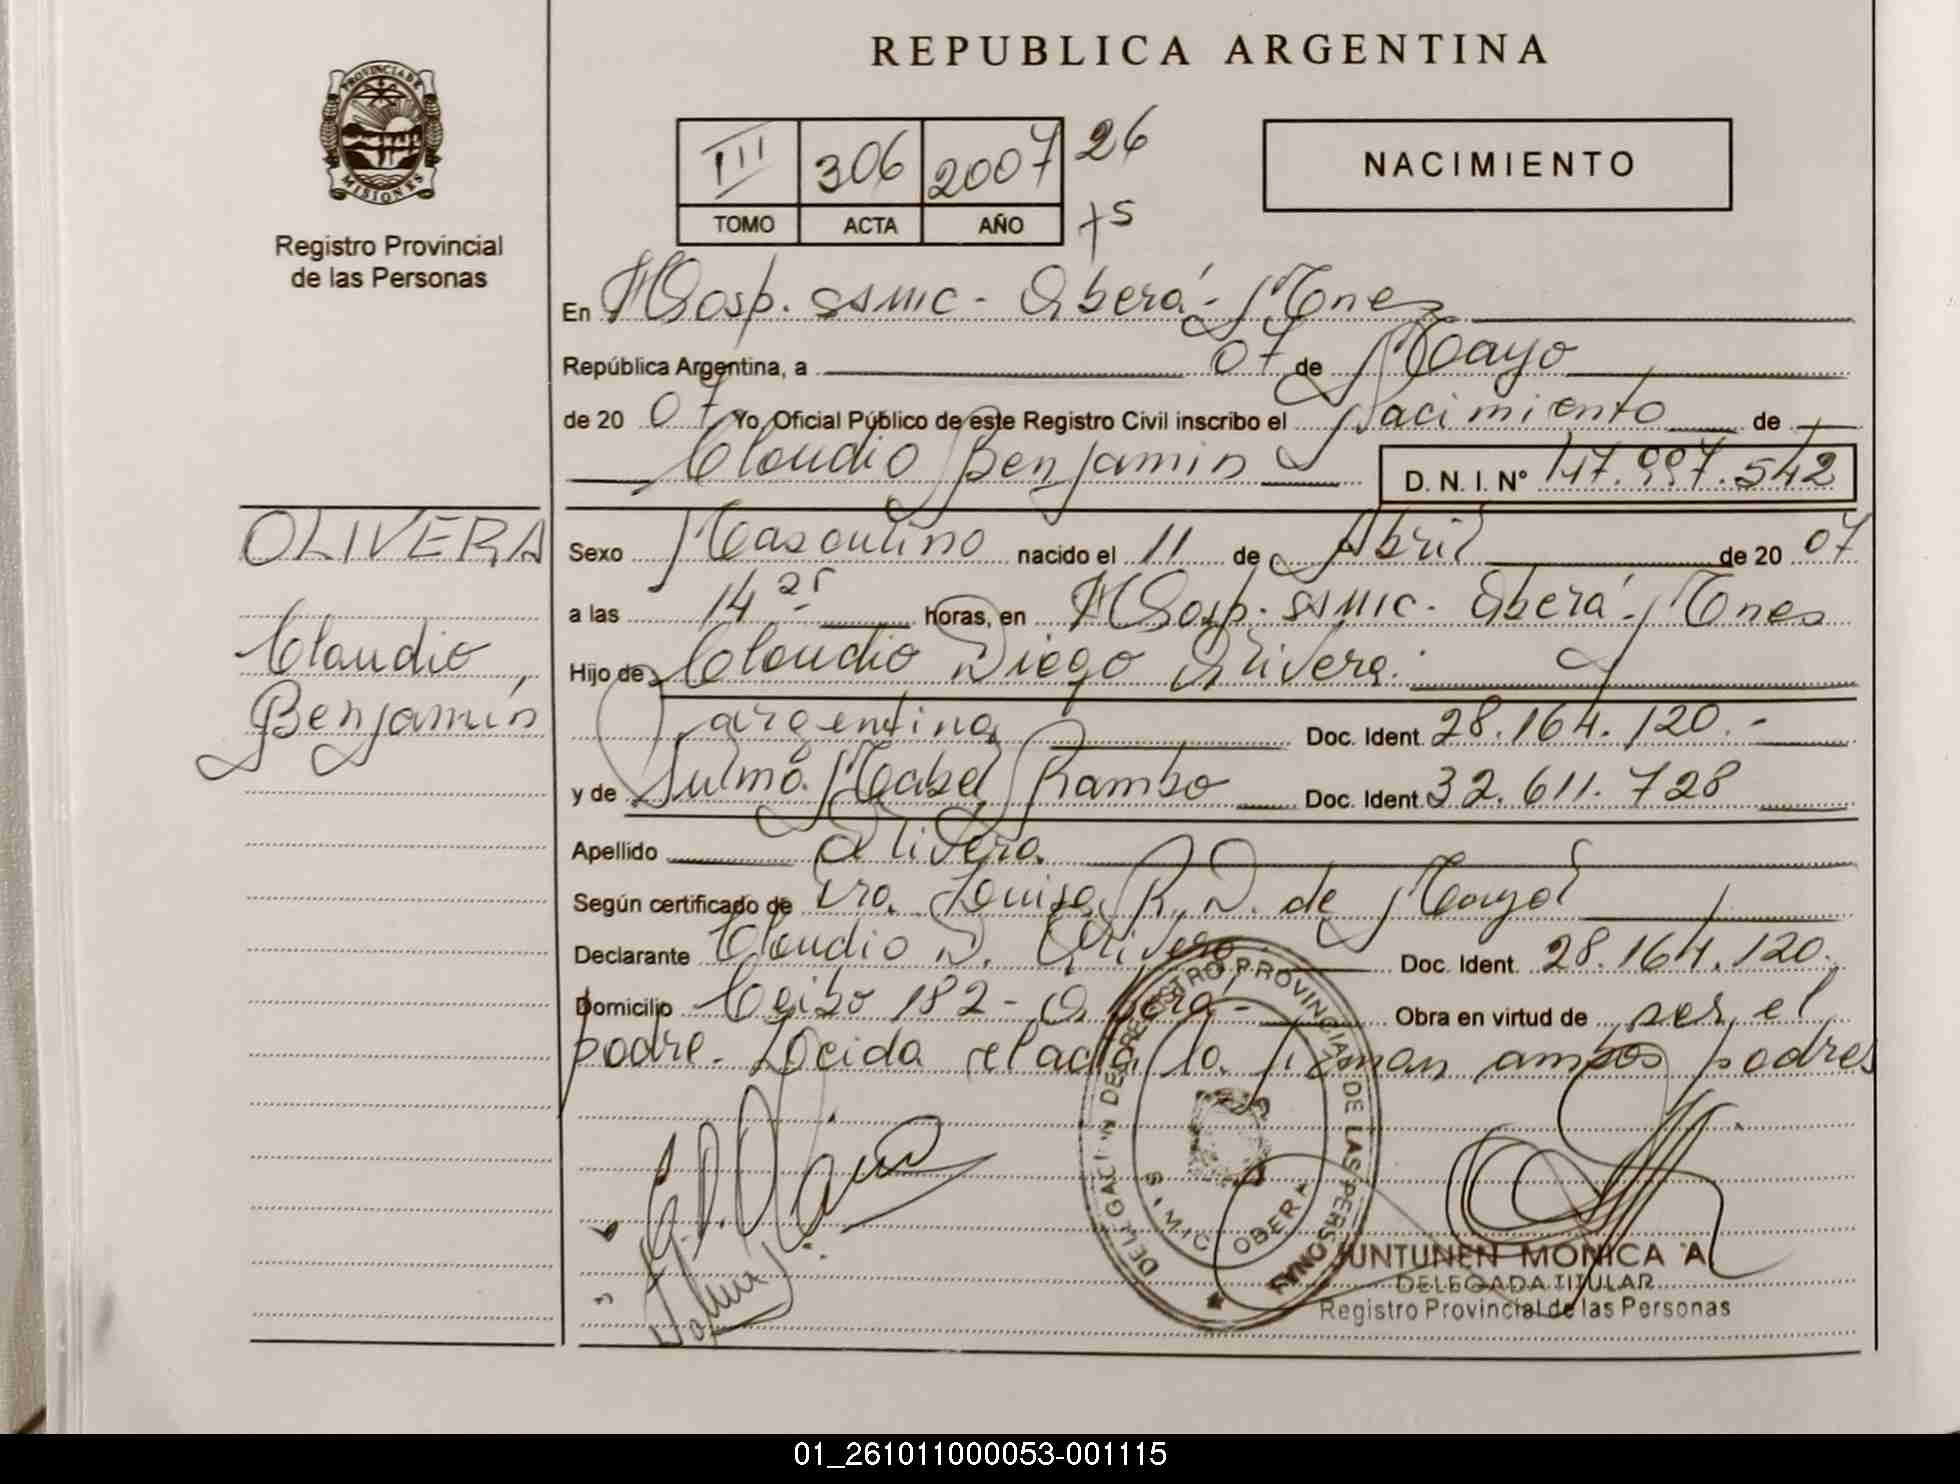 REPUBLICA ARGENTINA
PROVINCIA DE MISIONES
Registro Provincial
de las Personas
III 306 2007 26
TOMO ACTA AÑO
NACIMIENTO
En Hosp. SSMIC - Oberá - Mnes
República Argentina, a 07 de Mayo
de 20 07 Yo, Oficial Público de este Registro Civil inscribo el Nacimiento de
Claudio Benjamin D. N. I. Nº 47.997.542
OLIVERA
Claudio
Benjamín
Sexo Masculino nacido el 11 de Abril de 20 07
a las 14 25 horas, en Hosp. SSMIC - Oberá - Mnes
Hijo de Claudio Diego Olivera.
argentina Doc. Ident. 28.164.120.-
y de Mabel Rambo Doc. Ident. 32.611.728
Apellido Olivera
Según certificado de Dra. Louisa R. D. de
Declarante Claudio D. Olivera Doc. Ident. 28.164.120.
Domicilio Ceibo 182 - Oberá - Obra en virtud de ser el
padre. Leida el acta la firman ambos padres
REGISTRO PROVINCIAL DE LAS PERSONAS
OBERA
JUNTUNEN MONICA A
DELEGADA TITULAR
Registro Provincial de las Personas
01_261011000053-001115